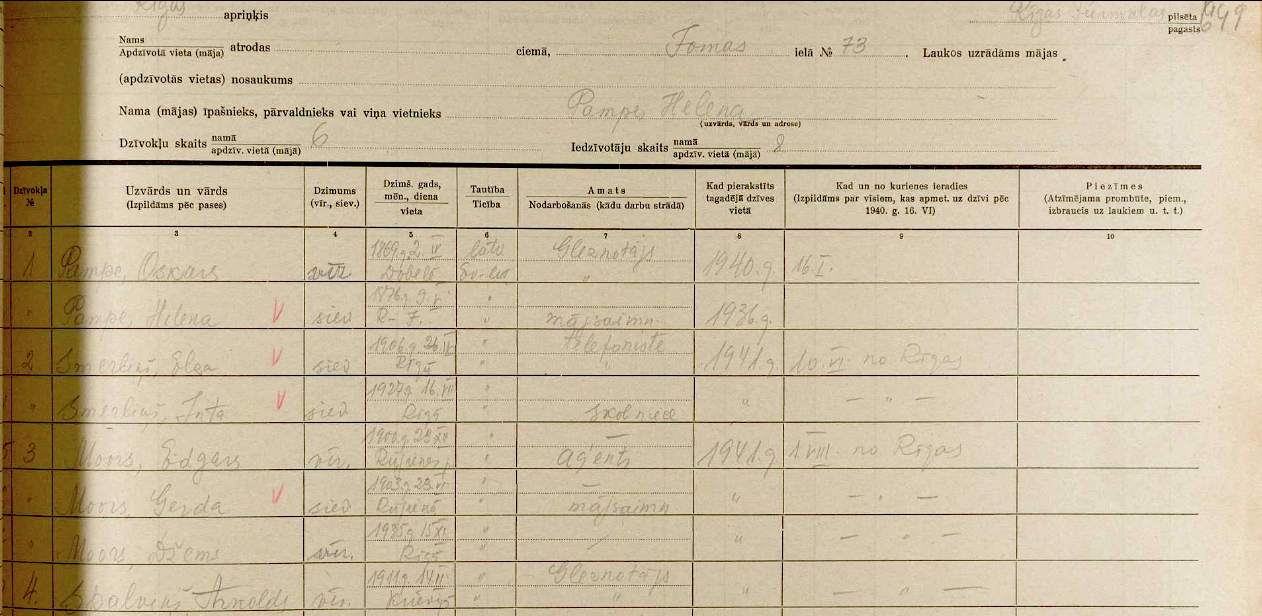 Rīgas apriņķis
Rīgas Jūrmalas pilsēta
pagasts
Nams
Apdzīvotā vieta (māja) atrodas ciemā, Tomas ielā № 73. Laukos uzrādāms mājas
(apdzīvotās vietas) nosaukums
Nama (mājas) īpašnieks, pārvaldnieks vai viņa vietnieks Pampe, Helena
(uzvārds, vārds un adrese)
Dzīvokļu skaits namā
apdzīv. vietā (mājā) 6 Iedzīvotāju skaits namā
apdzīv. vietā (mājā) 8
Dzīvokļa № Uzvārds un vārds (Izpildāms pēc pases) Dzimums (vīr., siev.) Dzimš. gads, mēn., diena vieta Tautība Ticība Amats Nodarbošanās (kādu darbu strādā) Kad pierakstīts tagadējā dzīves vietā Kad un no kurienes ieradies (Izpildāms par visiem, kas apmet. uz dzīvi pēc 1940. g. 16. VI) Piezīmes (Atzīmējama prombūte, piem., izbraucis uz laukiem u. t. t.)
2 3 4 5 6 7 8 9 10
1869.g. 2. IV latv. Gleznotājs
1 Pampe, Oskars vīr. Dobelē Ev. lut. " 1940.g. 16. I.
1876.g. 9. "
" Pampe, Helena V siev R- J. " mājsaimn. 1936.g.
1906.g. 26. " telefoniste
2 Smerliņš, Elga V siev Rīgā " " 1941.g. 10. VI. no Rīgas
1927.g. 16. VII "
" Smerliņš, Inta V siev Rīgā " skolniece " — " —
1900.g. 28. XI " —
3 Moors, Edgars vīr. Rūjienes p. " aģents 1941.g. 1. VIII. no Rīgas
1903.g. 23. " —
" Moors, Gerda V siev Rūjienā " mājsaimn " — " —
1935.g. 15. XI "
" Moors, Džems vīr. Rīgā " / " — " —
1911.g. 14. II " Gleznotājs
4. Arnolds vīr. Krievijā " " " — " —